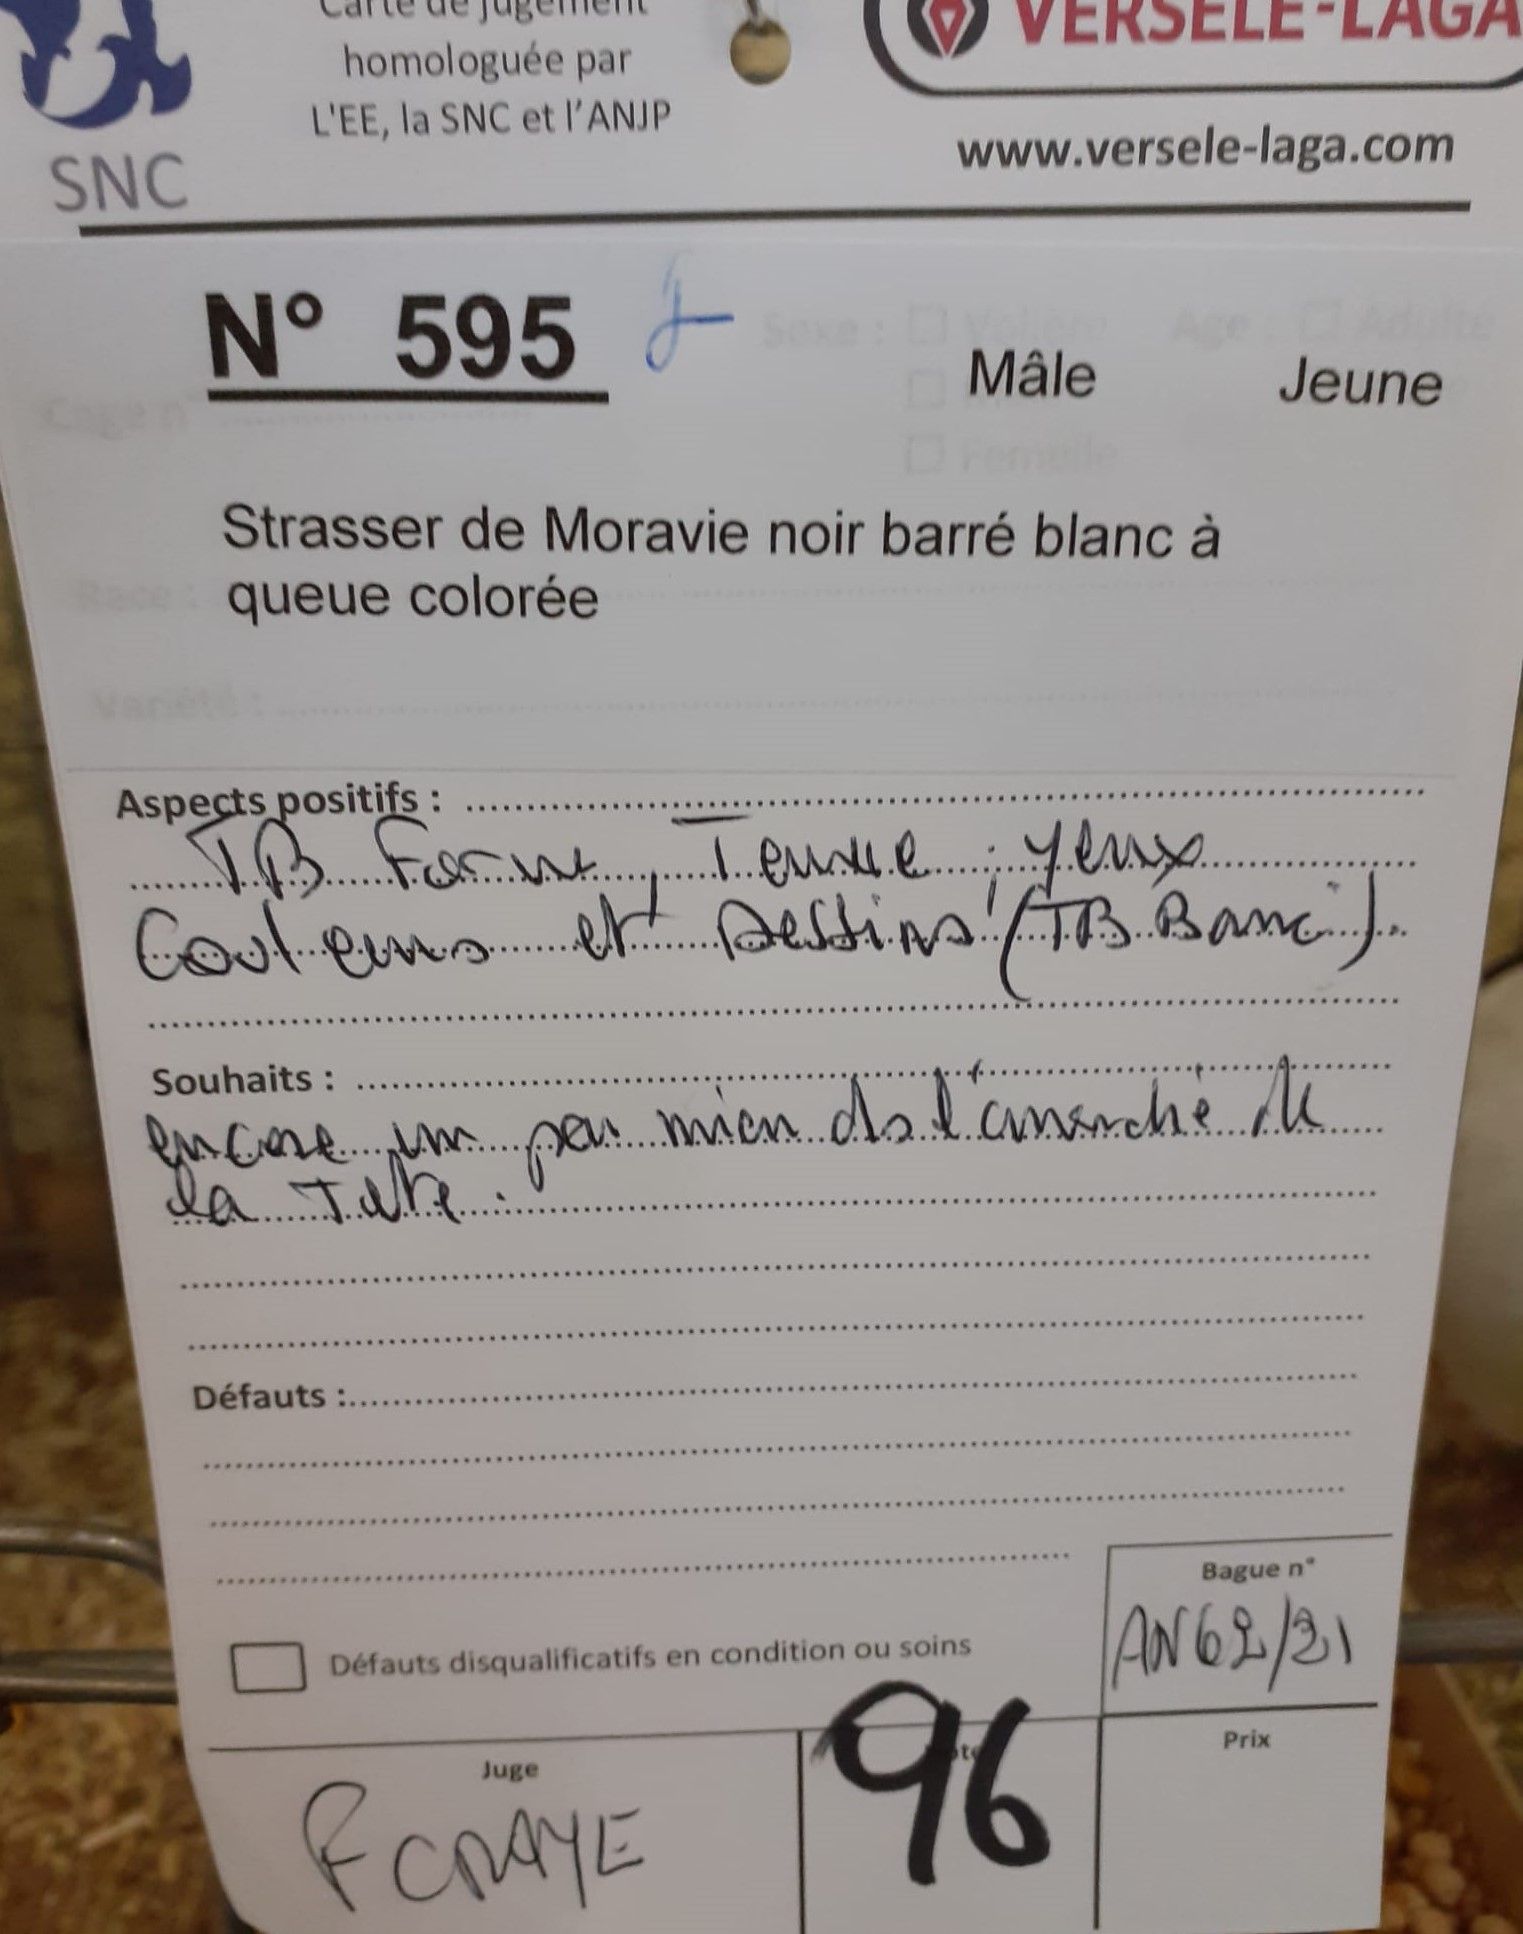 Carte de jugement
homologuée par
L'EE, la SNC et l'ANJP
SNC
VERSELE-LAGA
www.versele-laga.com
N° 595
Mâle Jeune
Sexe : Volière Age : Adulte
Cage n°
Femelle
Strasser de Moravie noir barré blanc à
queue colorée
Race :
Variété :
Aspects positifs :
TB Forme, Tenue, yeux
Couleurs et Dessins (TB Barré).
Souhaits :
encore un peu mieu ds l'amorche de
la Tete.
Défauts :
Bague n°
AN62/21
Défauts disqualificatifs en condition ou soins
Juge
Prix
F CRAYE
96